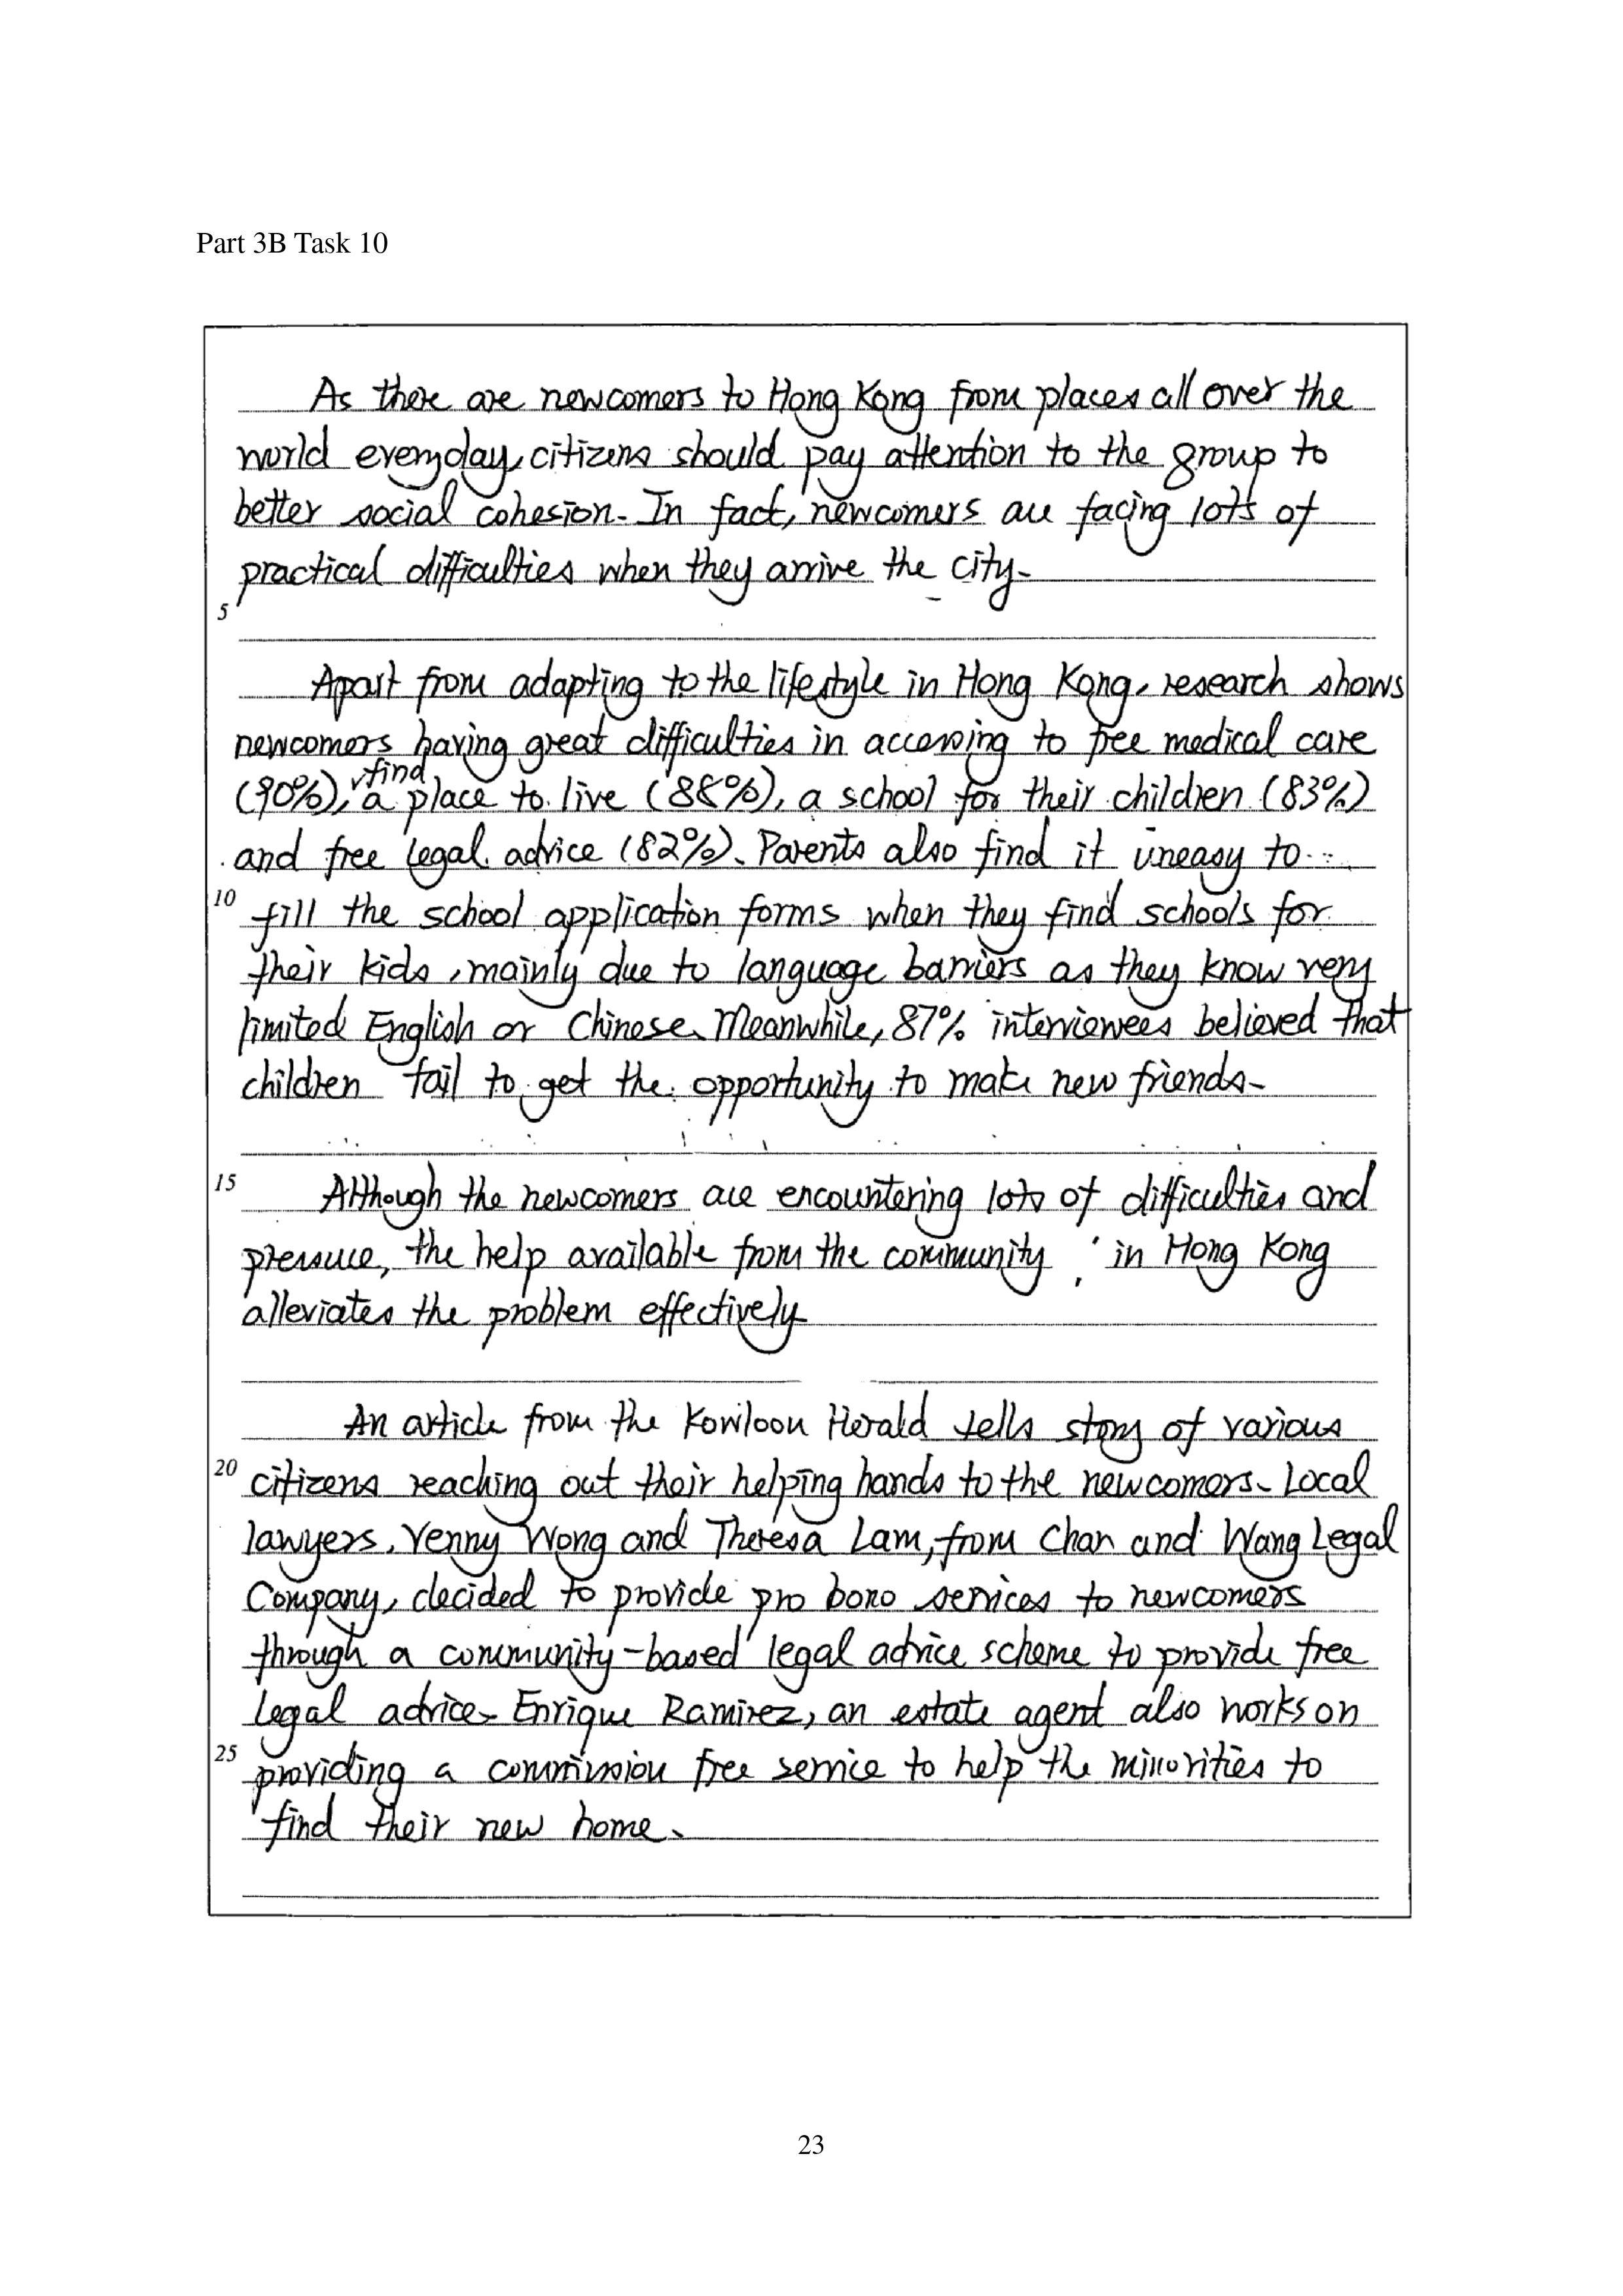 Part 3B Task 10
As there are newcomers to Hong Kong from places all over the
world everyday, citizens should pay attention to the group to
better social cohesion. In fact, newcomers are facing lots of
practical difficulties when they arrive the city.
5
Apart from adapting to the lifestyle in Hong Kong, research shows
newcomers having great difficulties in accessing to free medical care
find
(90%), a place to live (88%), a school for their children (83%)
and free legal advice (82%). Parents also find it uneasy to
10 fill the school application forms when they find schools for
their kids, mainly due to language barriers as they know very
limited English or Chinese. Meanwhile, 87% interviewees believed that
children fail to get the opportunity to make new friends.
15 Although the newcomers are encountering lots of difficulties and
pressure, the help available from the community in Hong Kong
alleviates the problem effectively
An article from the Kowloon Herald tells story of various
20 citizens reaching out their helping hands to the newcomers. Local
lawyers, Yenny Wong and Theresa Lam, from Chan and Wang Legal
Company, decided to provide pro bono services to newcomers
through a community-based legal advice scheme to provide free
legal advice. Enrique Ramirez, an estate agent also works on
25 providing a commission free service to help the minorities to
find their new home.
23